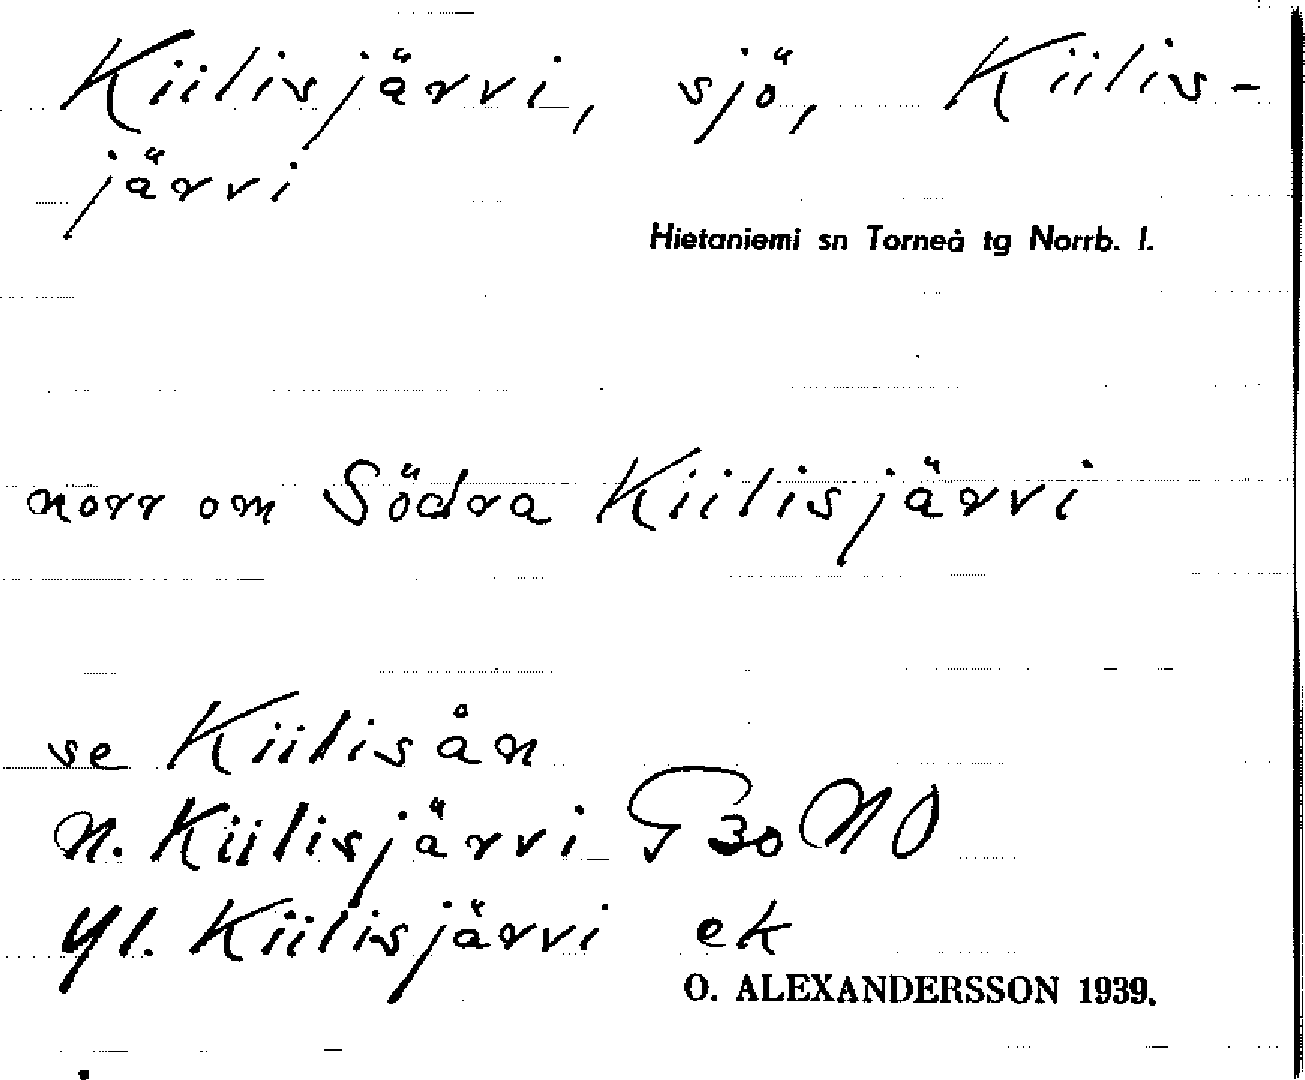 Kiilisjärvi, sjö, Kiilis-
järvi
Hietaniemi sn Torneå tg Norrb. l.
norr om Södra Kiilisjärvi
se Kiilisån
N. Kiilisjärvi G 30 NO
Yl. Kiilisjärvi ek
O. ALEXANDERSSON 1939.